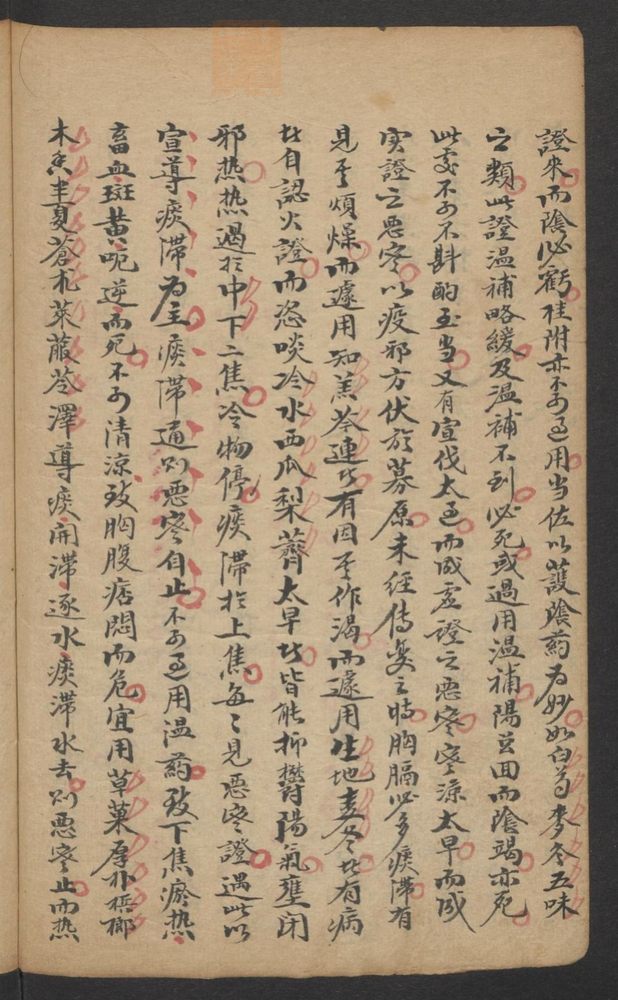 證來而陰必虧桂附亦不可過用当佐以護陰药為妙如白芍麥冬五味
之類此證温補略緩及温補不到必死或過用温補陽豈回而陰竭亦死
此處不可不斟酌至当又有宣伐太過而成虚證之惡寒寒涼太早而成
实證之惡寒以疫邪方伏於募原未經傳变之時胸膈必多痰滯有
見其煩燥而遽用知羔芩連者有因其作渴而遽用生地麦冬者有病
者自認火證而恣啖冷水西瓜梨薺太早者皆能抑欝陽氣壅闭
邪热热遏於中下二焦冷物停痰滯於上焦每每見惡寒證遇此以
宣導痰滯為主痰滯通则惡寒自止不可過用温药致下焦瘀热
畜血斑黄呃逆而死不可清涼致胸腹痞悶而危宜用草菓厚朴梹榔
木香半夏蒼朮萊菔苓澤導痰開滯逐水痰滯水去则惡寒止而热